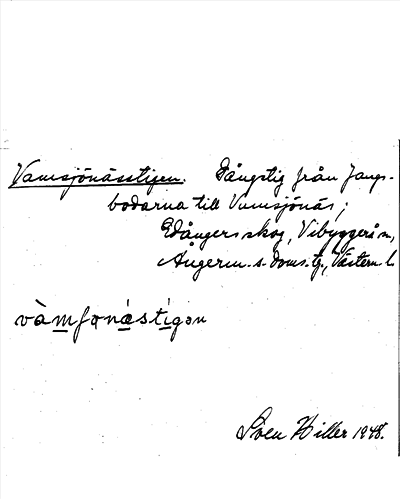 Vamsjönässtigen. Gångstig från Jangs-
bodarna till Vamsjönäs;
Edångers skog, Vibyggerå sn,
Ångerm. s. doms. tg., Västern. l.
vàmʃønä́stígən
Sven Hiller 1948.